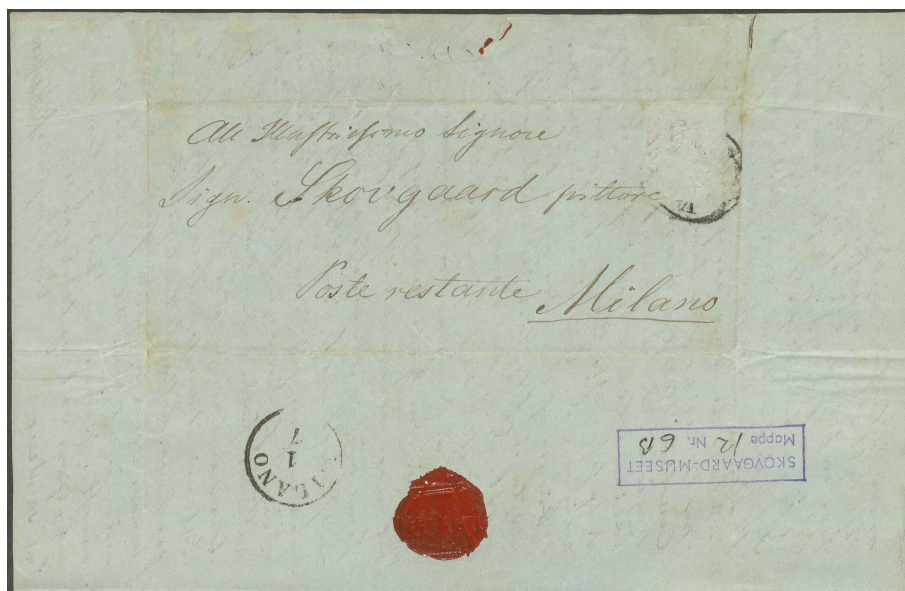 All Illustrissimo Signore
Sign. Skovgaard pittore
Poste restante Milano
MILANO
1
7
SKOVGAARD-MUSEET
Mappe 12 Nr. 6B